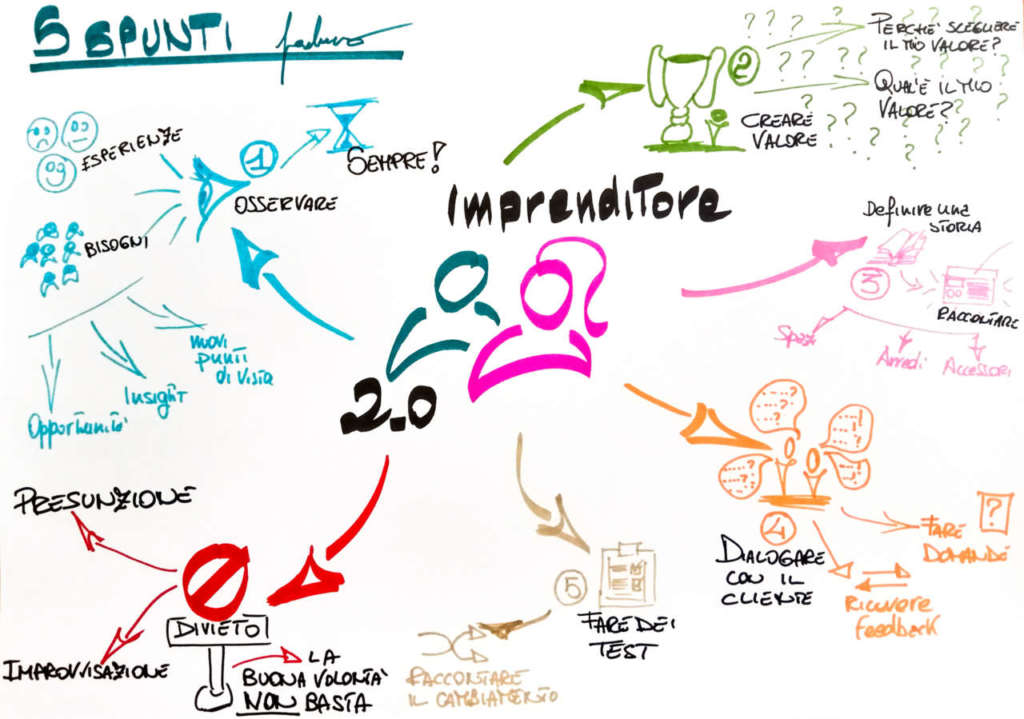 5 SPUNTI
Imprenditore
2.0
1
OSSERVARE
SEMPRE!
ESPERIENZE
BISOGNI
Opportunità
Insight
nuovi
punti
di vista
2
CREARE
VALORE
PERCHÈ SCEGLIERE
IL MIO VALORE?
QUAL'È IL MIO
VALORE?
? ? ? ? ? ? ? ? ? ? ? ? ? ? ? ? ? ? ? ? ? ? ? ? ? ?
Definire una
STORIA
3
RACCONTARE
Spazi
Arredi
Accessori
4
DIALOGARE
CON IL
CLIENTE
?
FARE
DOMANDE
Ricevere
feedback
5
FARE DEI
TEST
RACCONTARE
IL CAMBIAMENTO
DIVIETO
PRESUNZIONE
IMPROVVISAZIONE
LA
BUONA VOLONTA'
NON BASTA